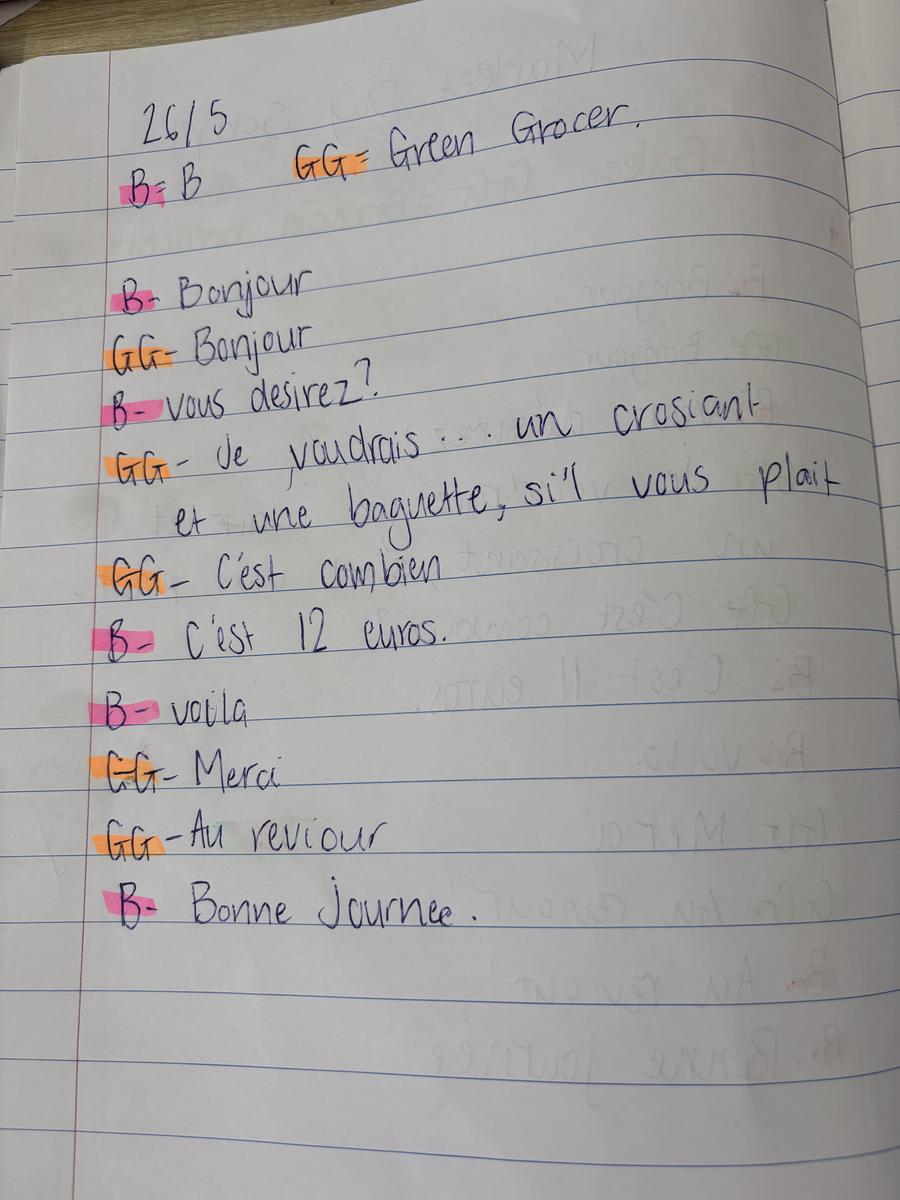 26/5
B= B GG= Green Grocer.
B- Bonjour
GG- Bonjour
B- vous desirez?
GG- Je voudrais... un crosiant
et une baguette, si'l vous plait
GG- C'est combien
B- C'est 12 euros.
B- voila
GG- Merci
GG- Au reviour
B- Bonne journee.